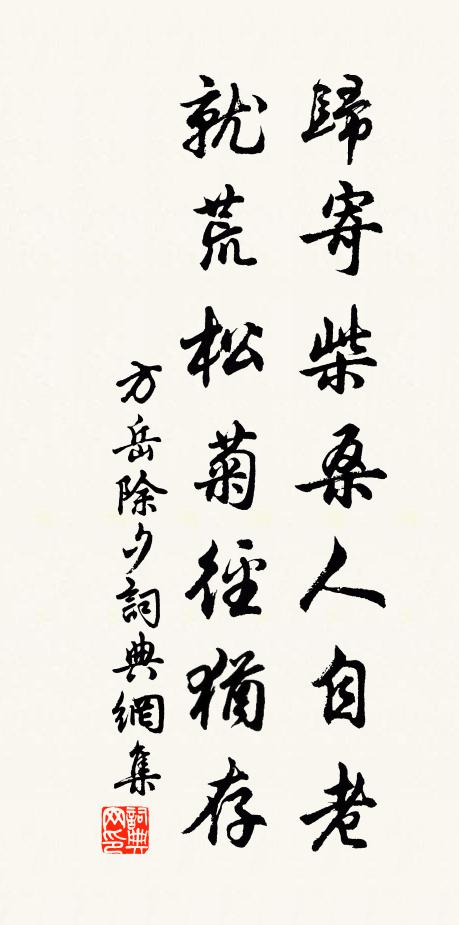 歸寄柴桑人自老
就荒松菊徑猶存
方岳除夕詞典網集
詞典网印